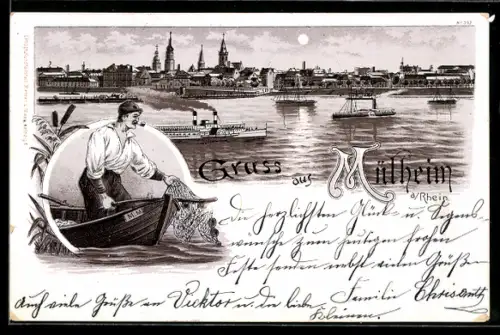 Gruss aus Mülheim
a/Rhein.
Die herzlichsten Glück- u. Segens-
wünsche zum heutigen frohen
Feste senden nebst vielen Grüßen
Familie Chrisandt
Auch viele Grüße an Vicktor u. die liebe
Kleinen.